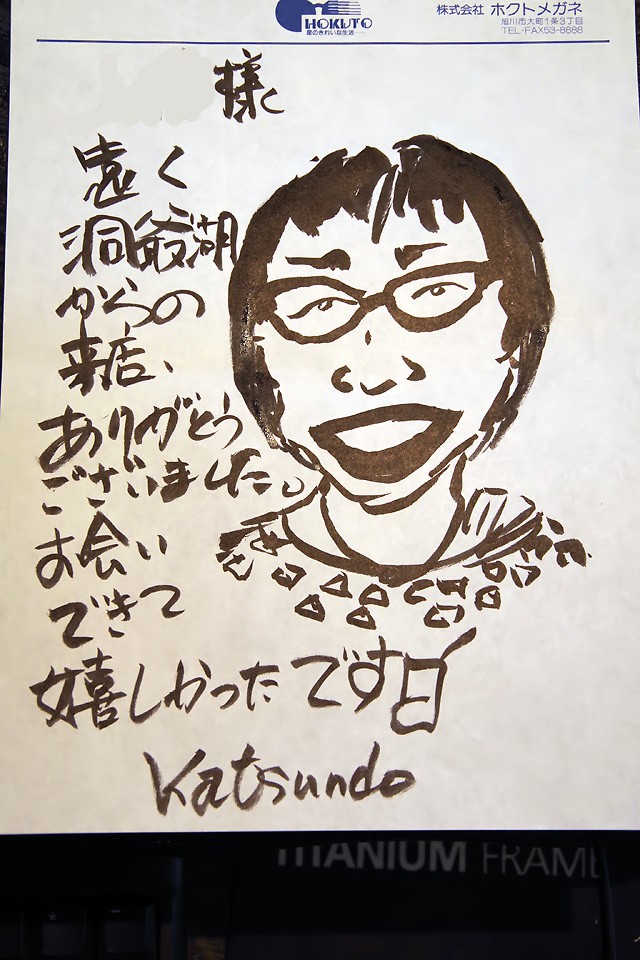 HOKUTO
星のきれいな生活……
株式会社 ホクトメガネ
旭川市大町1条3丁目
TEL・FAX53-8888
様
遠く
洞爺湖
からの
来店、
ありがとう
ございました。
お会い
できて
嬉しかったです
Katsundo
TITANIUM FRAME